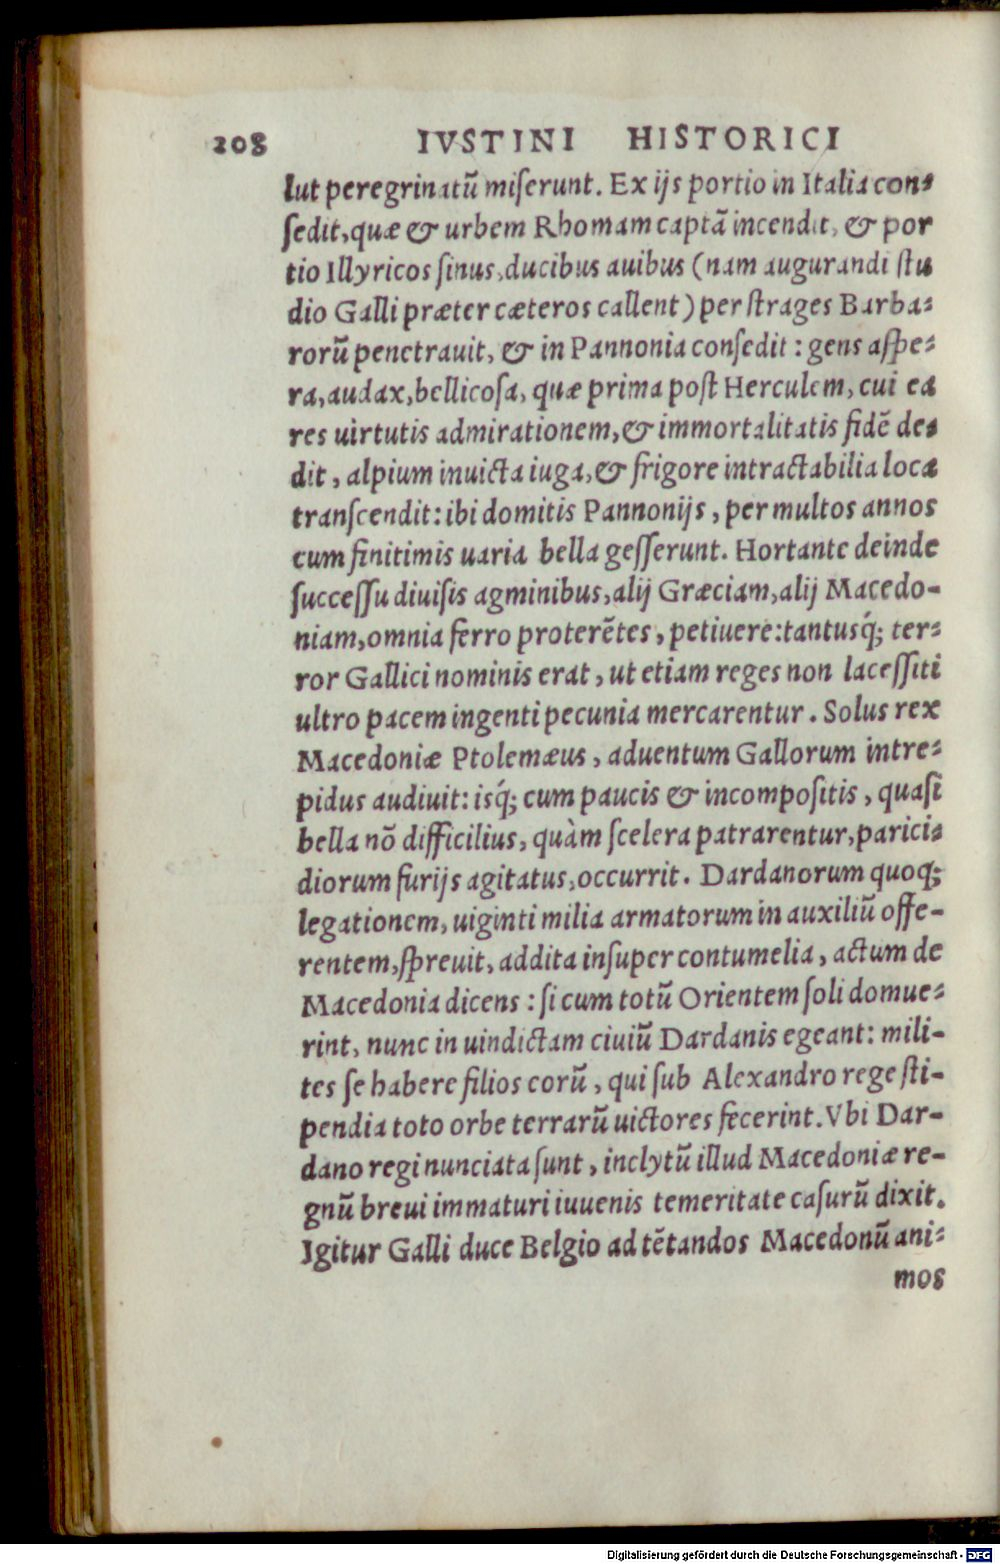 208 IVSTINI HISTORICI
lut peregrinatū miſerunt. Ex ijs portio in Italia con-
ſedit, quæ & urbem Rhomam captā incendit, & por
tio Illyricos ſinus, ducibus auibus (nam augurandi ſtu
dio Galli præter cæteros callent) per ſtrages Barba-
rorū penetrauit, & in Pannonia conſedit: gens aſpe-
ra, audax, bellicoſa, quæ prima poſt Herculem, cui ea
res uirtutis admirationem, & immortalitatis fidē de-
dit, alpium inuicta iuga, & frigore intractabilia loca
tranſcendit: ibi domitis Pannonijs, per multos annos
cum finitimis uaria bella geſſerunt. Hortante deinde
ſucceſſu diuiſis agminibus, alij Græciam, alij Macedo-
niam, omnia ferro proterētes, petiuere: tantusq́; ter-
ror Gallici nominis erat, ut etiam reges non laceſſiti
ultro pacem ingenti pecunia mercarentur. Solus rex
Macedoniæ Ptolemæus, aduentum Gallorum intre-
pidus audiuit: isq́; cum paucis & incompoſitis, quaſi
bella nō difficilius, quàm ſcelera patrarentur, parici-
diorum furijs agitatus, occurrit. Dardanorum quoq;
legationem, uiginti milia armatorum in auxiliū offe-
rentem, ſpreuit, addita inſuper contumelia, actum de
Macedonia dicens: ſi cum totū Orientem ſoli domue-
rint, nunc in uindictam ciuiū Dardanis egeant: mili-
tes ſe habere filios eorū, qui ſub Alexandro rege ſti-
pendia toto orbe terrarū uictores fecerint. Vbi Dar-
dano regi nunciata ſunt, inclytū illud Macedoniæ re-
gnū breui immaturi iuuenis temeritate caſurū dixit.
Igitur Galli duce Belgio ad tētandos Macedonū ani-
mos
Digitalisierung gefördert durch die Deutsche Forschungsgemeinschaft - DFG